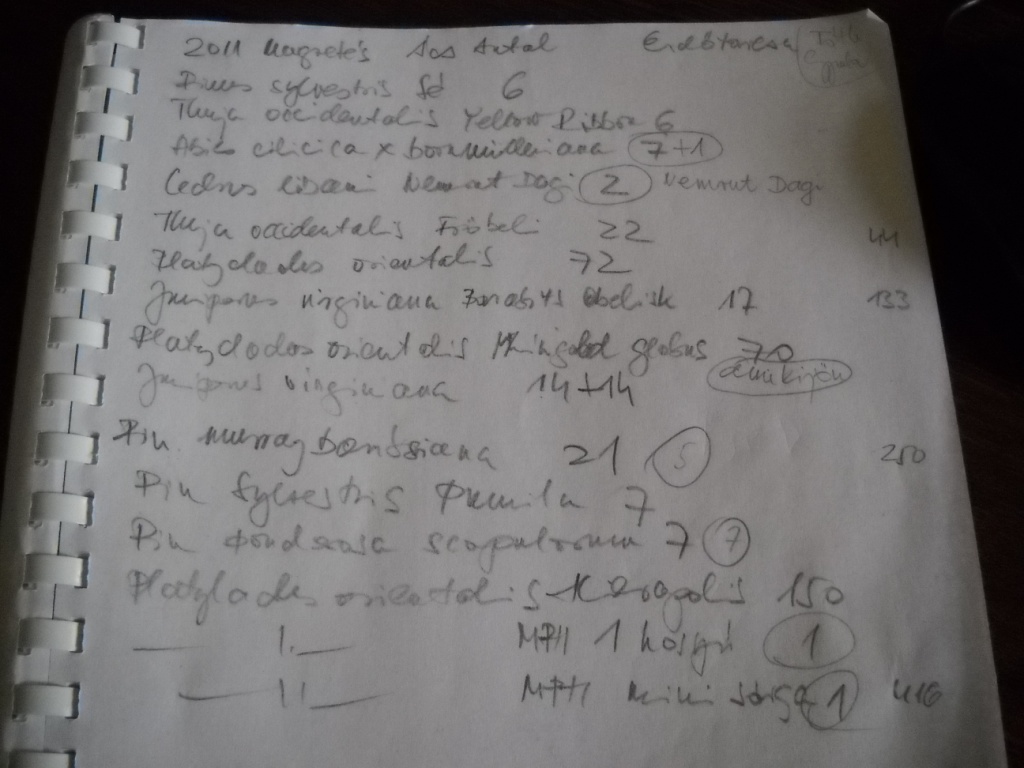 2011 Magvetés Sos Antal Erdőtarcsa
Pinus sylvestris fd 6
Thuja occidentalis Yellow Ribbon 6
Abies cilicica x bornmulleriana 7+1
Cedrus libani Nemrut Dagi 2 Nemrut Dagi
Thuja occidentalis Fröbeli 22 44
Platyclades orientalis 72
Juniperus virginiana Obelisk 17 133
Platycladus orientalis Meingold globus 70
Juniperus virginiana 14+14
Pin. murray banksiana 21 5 250
Pin Sylvestris Pumila 7
Pin Ponderosa scopulorum 7 7
Platyclades orientalis 150
— 1. — MPH 1 1
— 11 — MPH mini sárga 1 416